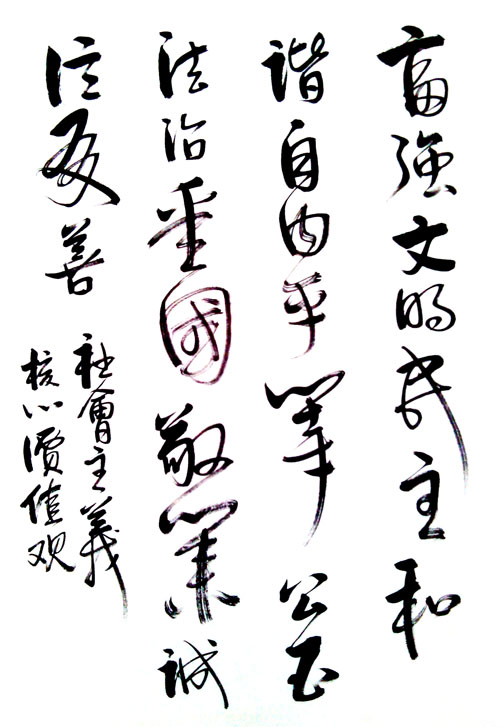 富强文明民主和
谐自由平等公正
法治爱國敬業诚
信友善
社會主義
核心價值观